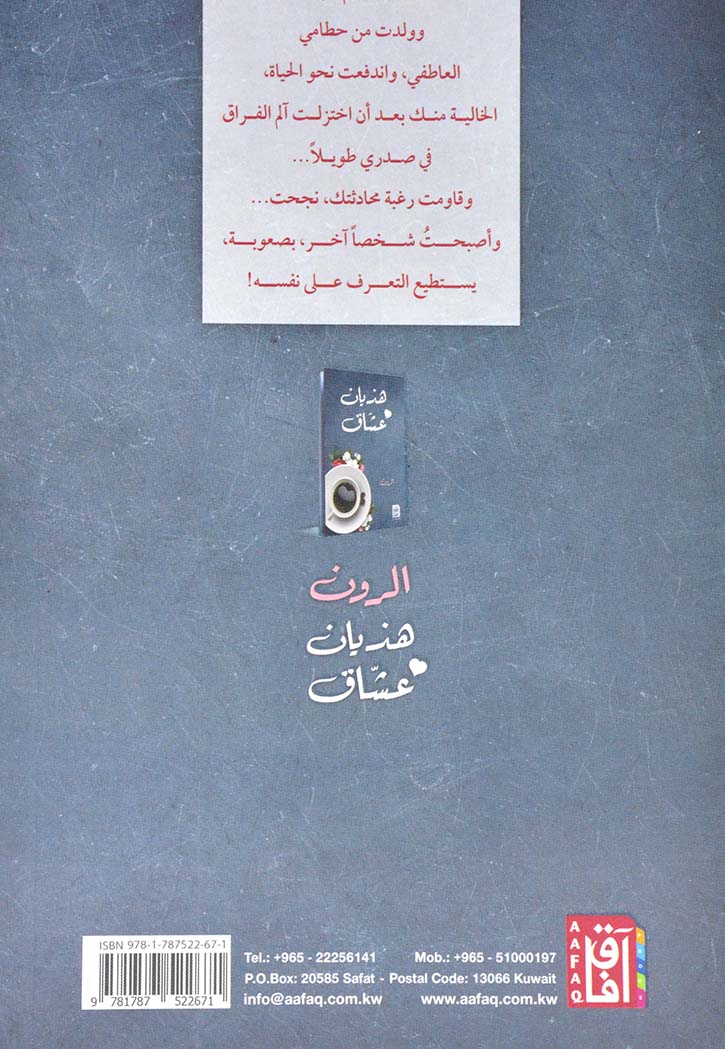 وولدت من حطامي
العاطفي، واندفعت نحو الحياة،
الخالية منك بعد أن اختزلت آلم الفراق
في صدري طويلاً...
وقاومت رغبة محادثتك، نجحت...
وأصبحتُ شخصاً آخر، بصعوبة،
يستطيع التعرف على نفسه!
هذيان
عشّاق
الرون
الرون
هذيان
عشّاق
ISBN 978-1-787522-67-1
9 781787 522671
Tel.: +965 - 22256141 Mob.: +965 - 51000197
P.O.Box: 20585 Safat - Postal Code: 13066 Kuwait
info@aafaq.com.kw www.aafaq.com.kw
AAFAQ
آفاق